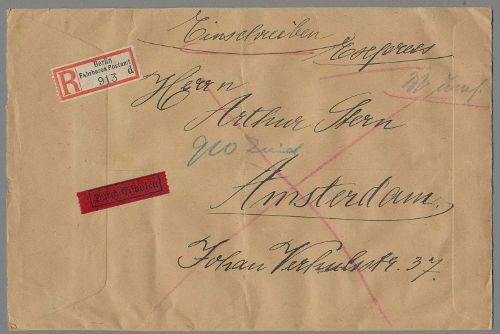 Einschreiben
Expreß
Berlin
Fahrbares Postamt
R 913 d
Herrn
Arthur Stern
Zuid
Amsterdam.
Durch Eilboten
Johan Verhulststr. 37.